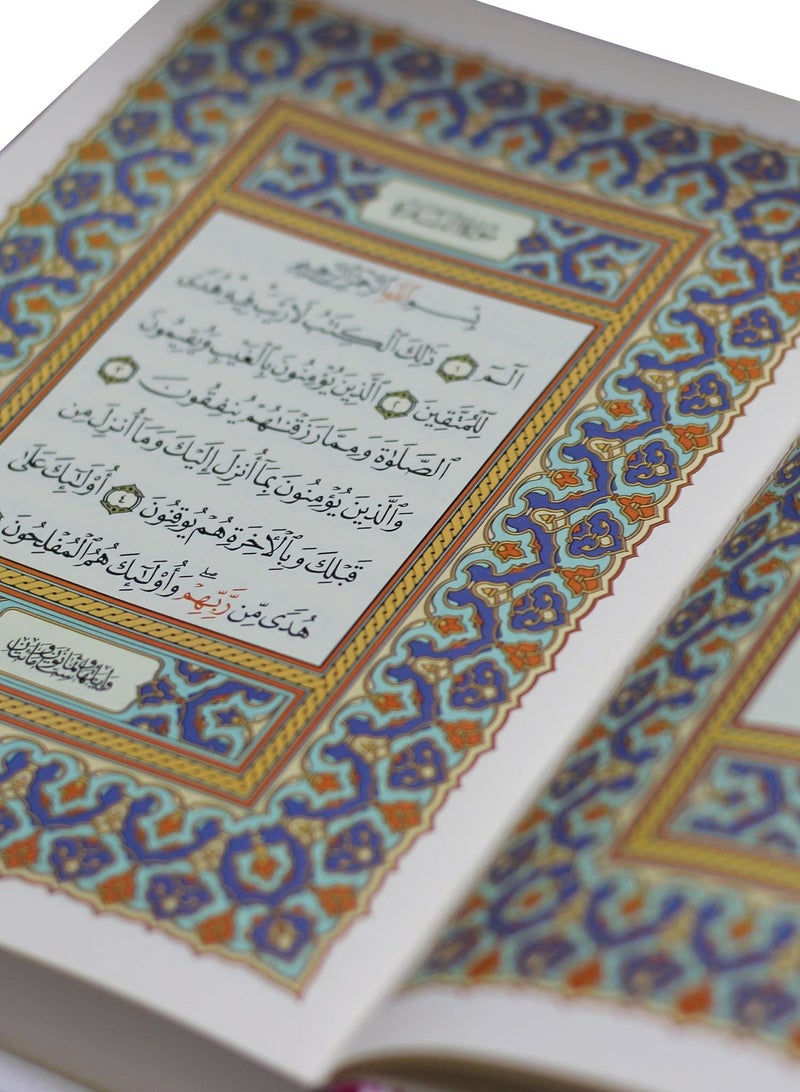 سورة البقرة
بسم الله الرحمن الرحيم
الٓمٓ ١ ذَٰلِكَ ٱلْكِتَٰبُ لَا رَيْبَ فِيهِ هُدًى
لِّلْمُتَّقِينَ ٢ ٱلَّذِينَ يُؤْمِنُونَ بِٱلْغَيْبِ وَيُقِيمُونَ
ٱلصَّلَوٰةَ وَمِمَّا رَزَقْنَٰهُمْ يُنفِقُونَ ٣
وَٱلَّذِينَ يُؤْمِنُونَ بِمَآ أُنزِلَ إِلَيْكَ وَمَآ أُنزِلَ مِن
قَبْلِكَ وَبِٱلْءَاخِرَةِ هُمْ يُوقِنُونَ ٤ أُو۟لَٰٓئِكَ عَلَىٰ
هُدًى مِّن رَّبِّهِمْ ۖ وَأُو۟لَٰٓئِكَ هُمُ ٱلْمُفْلِحُونَ